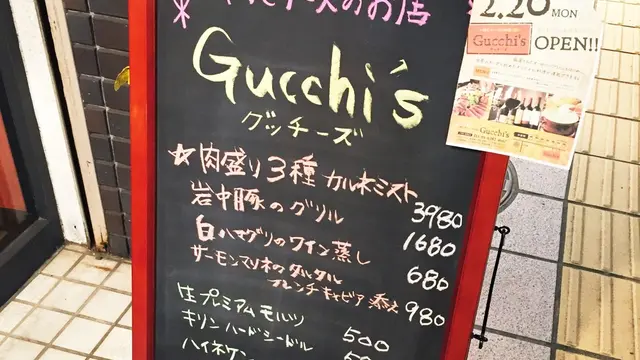 のお店
Gucchi's
グッチーズ
☆肉盛り3種 カルネミスト 3980
岩中豚のグリル 1680
白ハマグリのワイン蒸し 680
サーモンマリネのタルタル
フレンチキャビア添え 980
生プレミアムモルツ 500
キリン ハードシードル
ハイネケン
2.20 MON
Gucchi's OPEN!!
Gucchi's